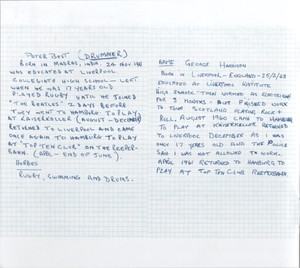 PETER BEST (DRUMMER)
BORN IN MADRAS, INDIA. 24 NOV. 1941
WAS EDUCATED AT LIVERPOOL
COLLEGIATE HIGH SCHOOL - LEFT
WHEN HE WAS 17 YEARS OLD
PLAYED RUGBY UNTIL HE JOINED
"THE BEATLES" 2 DAYS BEFORE
THEY WENT TO HAMBURG TO PLAY
AT KAISERKELLER (AUGUST - DECEMBER)
RETURNED TO LIVERPOOL AND CAME
ONCE AGAIN TO HAMBURG TO PLAY
AT "TOP TEN CLUB" ON THE REEPER-
BAHN. (APRIL - END OF JUNE).
HOBBIES
RUGBY, SWIMMING AND DRUMS.
NAME GEORGE HARRISON
BORN IN LIVERPOOL - ENGLAND - 25/2/43
EDUCATED AT LIVERPOOL INSTITUTE
HIGH SCHOOL THEN WORKED AS ELECTRICIAN
FOR 3 MONTHS - BUT FINISHED WORK
TO TOUR SCOTLAND PLAYING ROCK +
ROLL. AUGUST 1960 CAME TO HAMBURG
TO PLAY AT KAISERKELLER RETURNED
TO LIVERPOOL DECEMBER AS I WAS
ONLY 17 YEARS OLD AND THE POLICE
SAID I WAS NOT ALLOWED TO WORK.
APRIL 1961 RETURNED TO HAMBURG TO
PLAY AT TOP TEN CLUB REEPERBAHN.